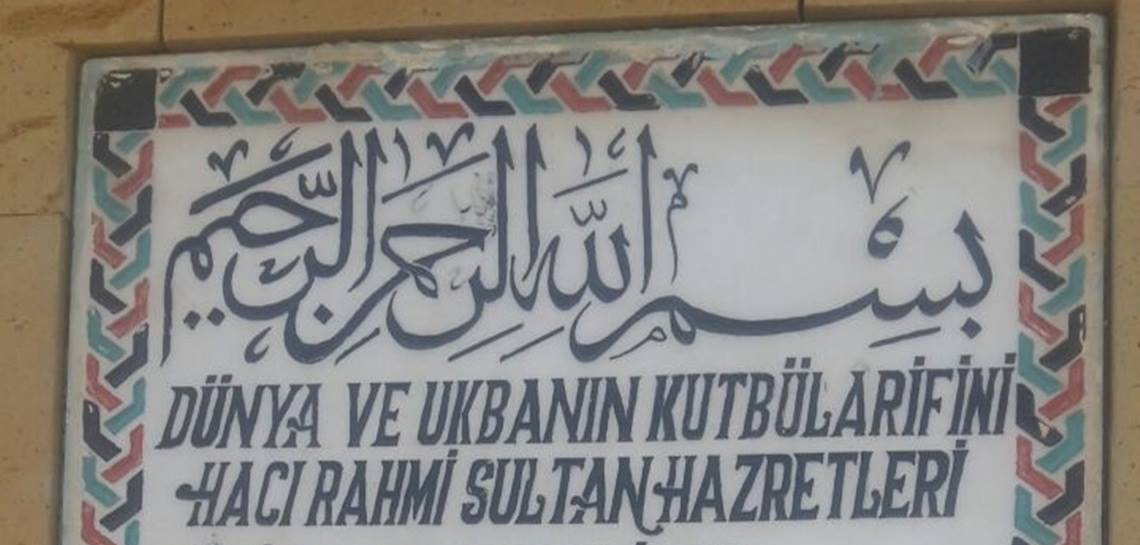 بسم الله الرحمن الرحيم
DÜNYA VE UKBANIN KUTBÜLARİFİNİ
HACI RAHMİ SULTAN HAZRETLERİ